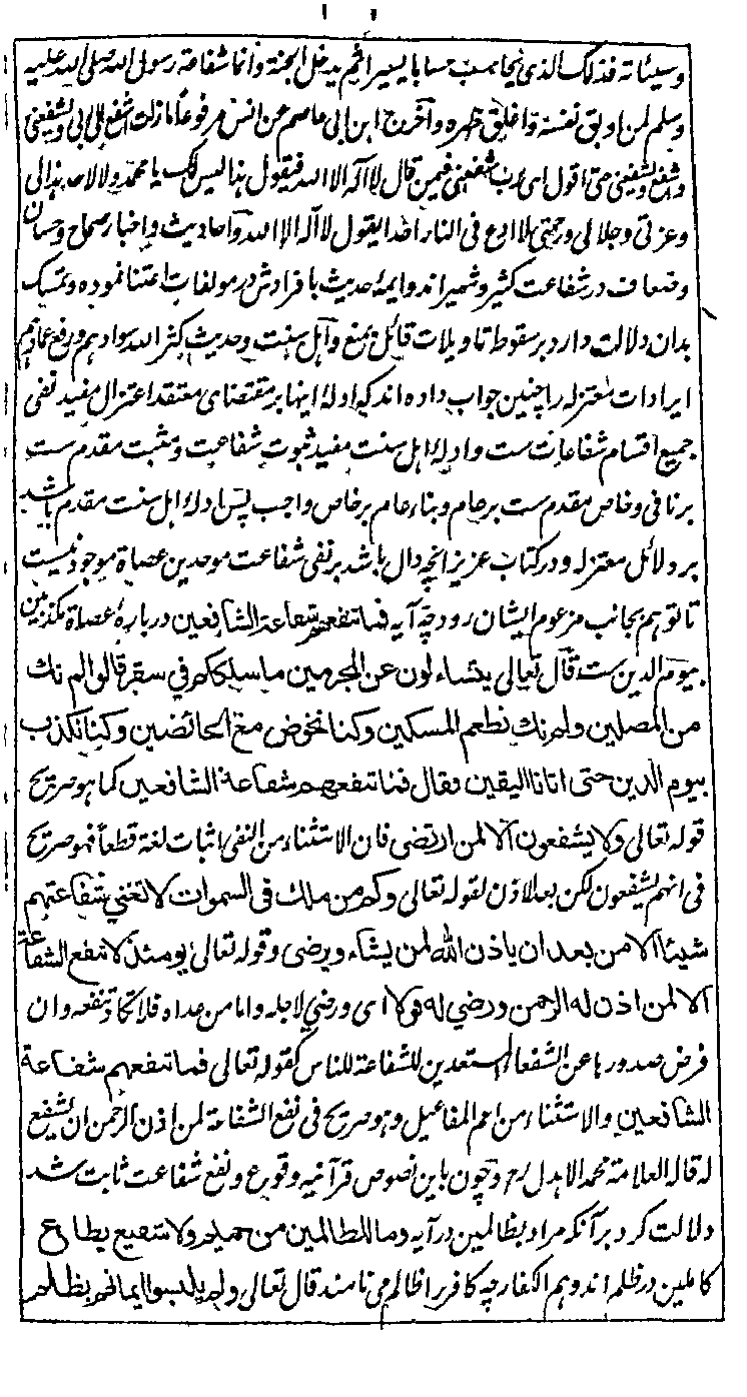 وسیئاته فذلک الذی یحاسب حسابا یسیرا ثم یدخل الجنة وانما شفاعة رسول الله صلی الله علیه
وسلم لمن اوبق نفسه واغلق ظهره وآخرج ابن ابی عاصم عن انس مرفوعاً مازلت اشفع الی ربی ویشفعنی
واشفع ویشفعنی حتی اقول ای رب شفعنی فیمن قال لا اله الا الله فیقول هذا لیس لک یا محمد ولا لاحد هذا لی
وعزتی وجلالی ورحمتی لا ادع فی النار احدا یقول لا اله الا الله وآحادیث واخبار صحاح وحسان
وضعاف در شفاعت کثیر و شهیر اند وایمهٔ حدیث بافرادش در مولفات اعتنا نموده و تمسک
بدان دلالت دارد بر سقوط تاویلات قائل بمنع وآهل سنت وحدیث کثر الله سوادهم ورفع عمادهم
ایرادات معتزله را چنین جواب داده اند که ادلهٔ اینها بر مقتضای معتقد اعتزال مفید نفی
جمیع اقسام شفاعات ست وادلهٔ اهل سنت مفید ثبوت شفاعت ومثبت مقدم ست
بر نافی وخاص مقدم ست بر عام وبناء عام بر خاص واجب پس ادلهٔ اهل سنت مقدم باشد
بر دلائل معتزله ودر کتاب عزیز انچه دال باشد بر نفی شفاعت موحدین عصاة موجود نیست
تا توهم بجانب مزعوم ایشان رود چه آیه فما تنفعهم شفاعة الشافعین دربارهٔ عصاة مکذبین
بیوم الدین ست قال تعالی یتساءلون عن المجرمین ما سلککم فی سقر قالوا لم نک
من المصلین ولم نک نطعم المسکین وکنا نخوض مع الخائضین وکنا نکذب
بیوم الدین حتی اتانا الیقین وقال فما تنفعهم شفاعة الشافعین کما هو صریح
قوله تعالی ولا یشفعون الا لمن ارتضی فان الاستثناء من النفی اثبات لغة قطعاً فهو صریح
فی انهم یشفعون لکن بعد الاذن لقوله تعالی وکم من ملک فی السموات لا تغنی شفاعتهم
شیئا الا من بعد ان یاذن الله لمن یشاء ویرضی وقوله تعالی یومئذ لا تنفع الشفاعة
الا لمن اذن له الرحمن ورضی له قولا ای ورضی لاجله واما من عداه فلا تکاد تنفعه وان
فرض صدورها عن الشفعاء المستعدین للشفاعة للناس کقوله تعالی فما تنفعهم شفاعة
الشافعین والاستثناء من اعم المفاعیل وهو صریح فی نفع الشفاعة لمن اذن الرحمن ان یشفع
له قاله العلامة محمد الاهدل رح وچون باین نصوص قرآنیه وقوع ونفع شفاعت ثابت شد
دلالت کرد بر آنکه مراد بظالمین در آیه وما للظالمین من حمیم ولا شفیع یطاع
کاملین در ظلم اند وهم الکفار چه کافر را ظالم می نامند قال تعالی ولم یلبسوا ایمانهم بظلم